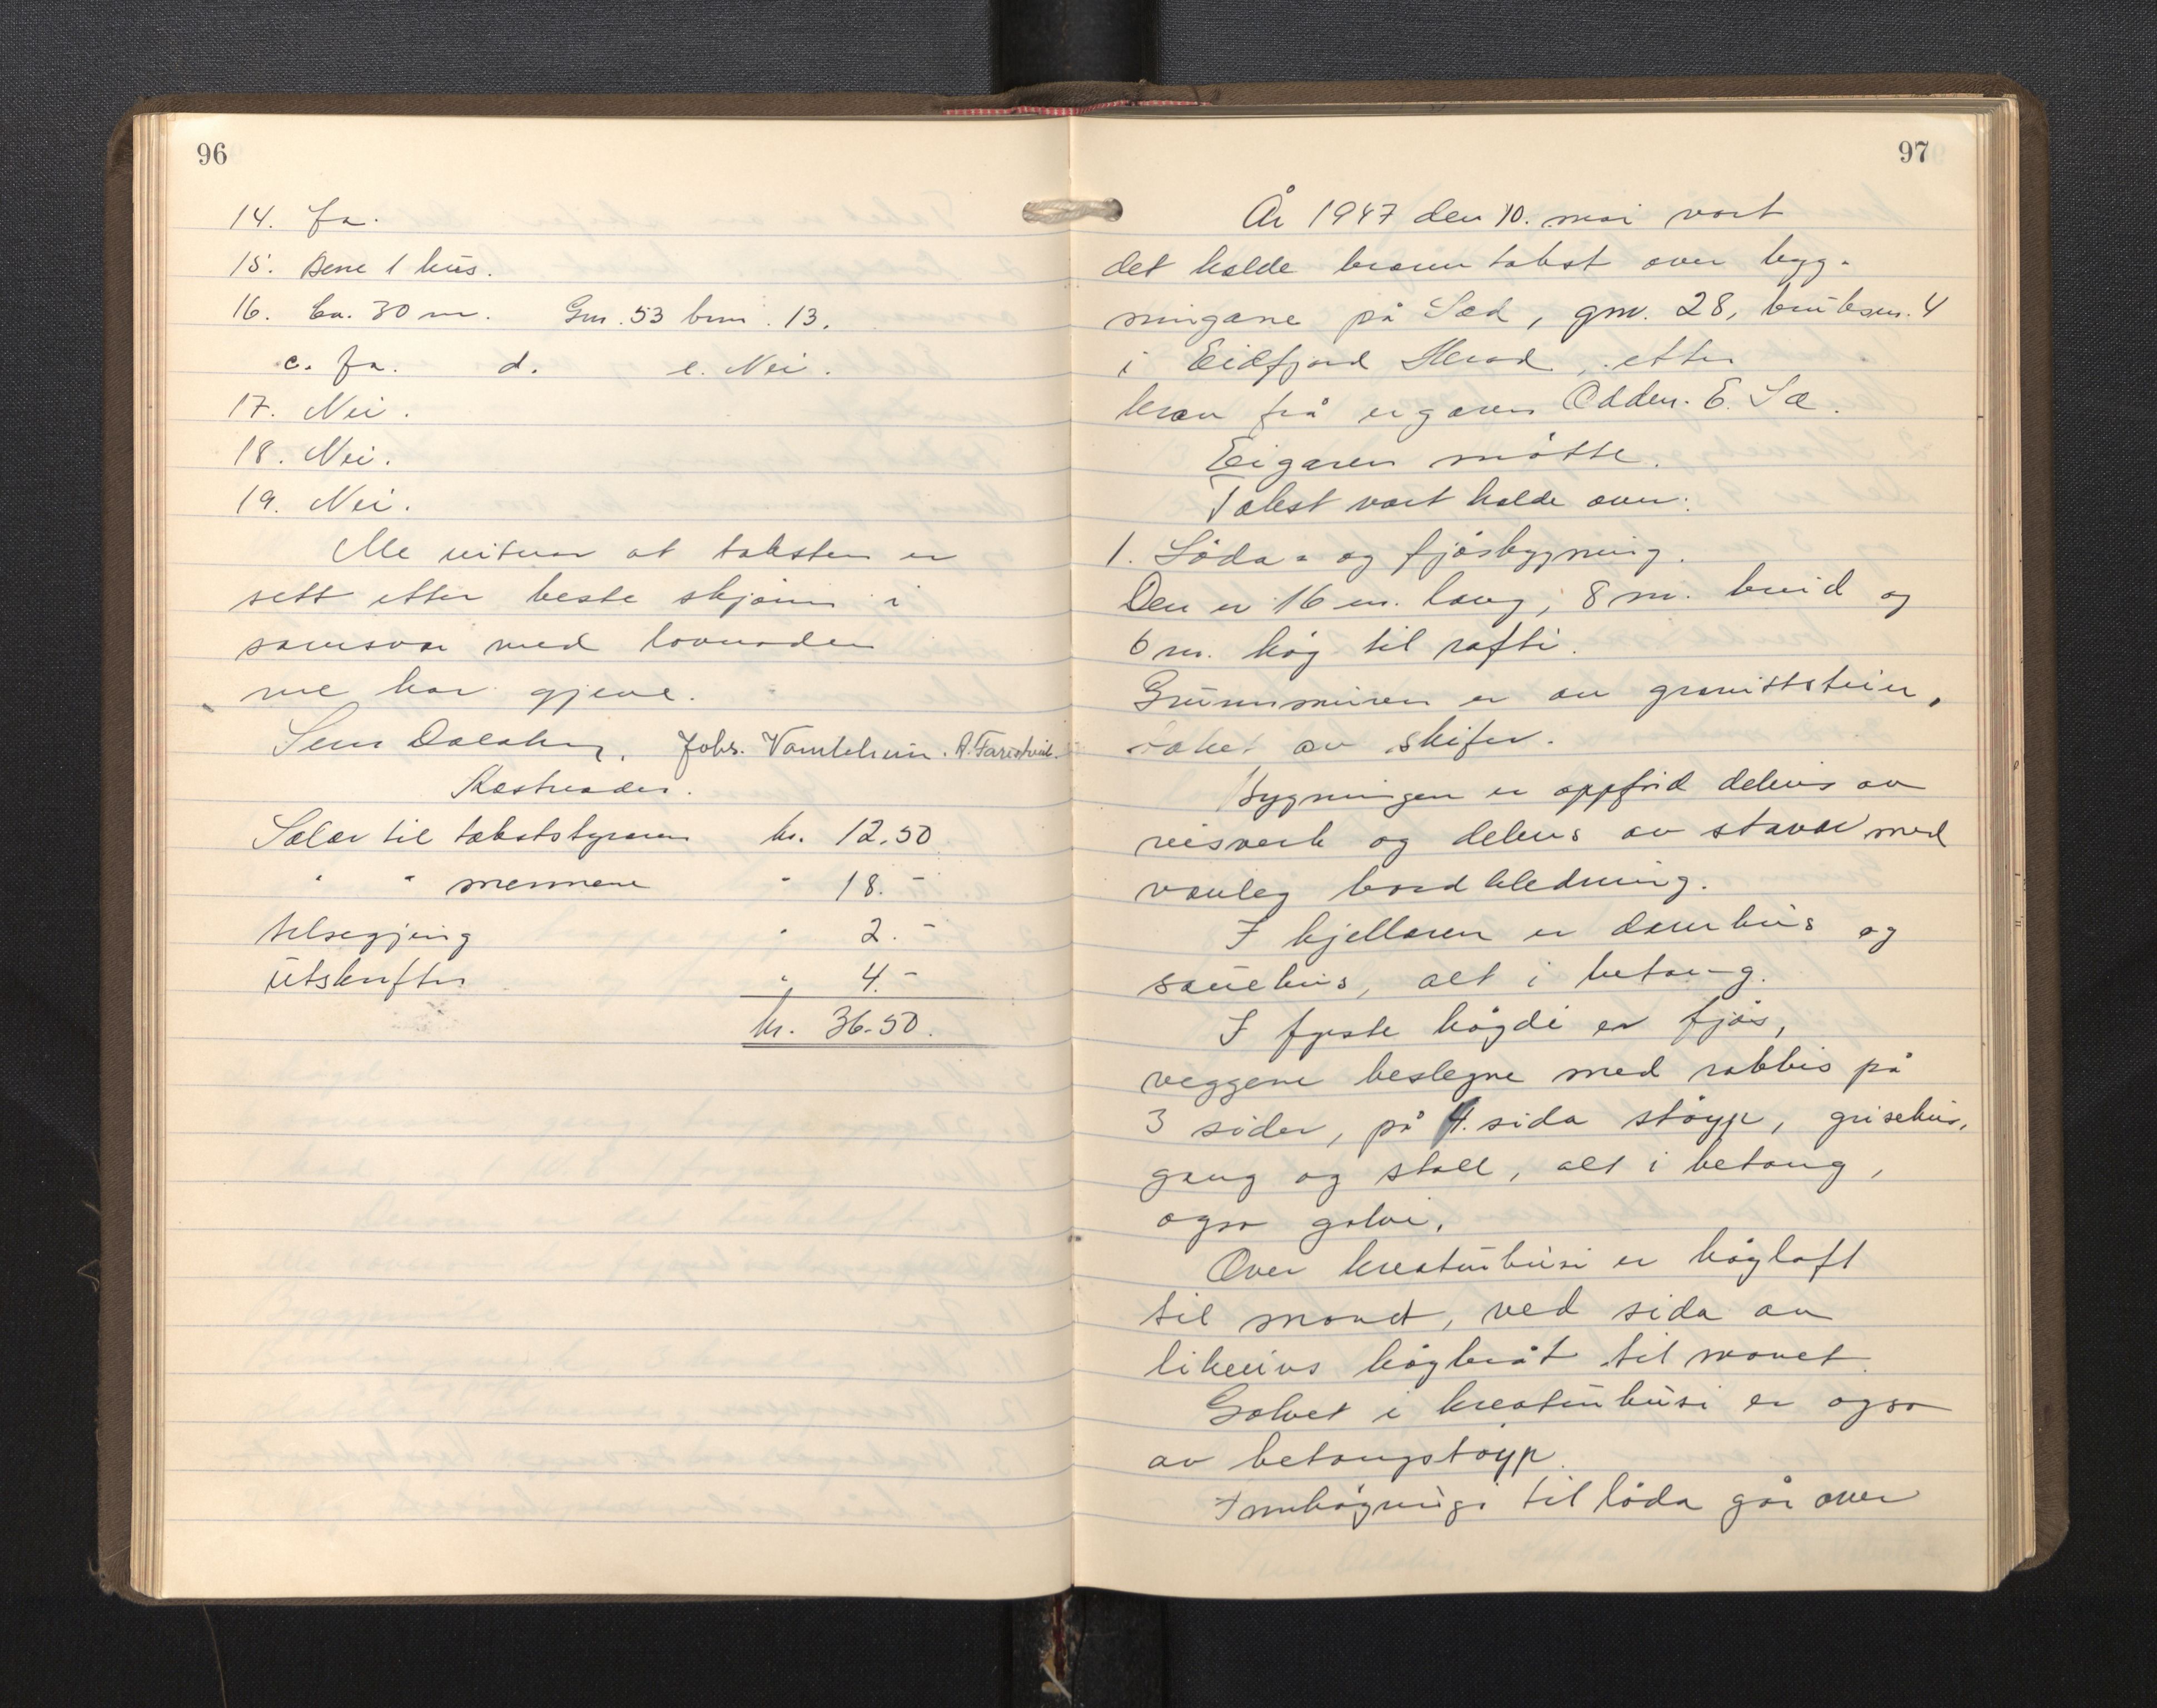 96
14. Ja.
15. Berre 1 hus.
16. Ca. 30 m. Gnr. 53 bnr. 13.
c. Ja. d. e. Nei.
17. Nei.
18. Nei.
19. Nei.
Me vitnar at taksten er
sett etter beste skjønn i
samsvar med lovnaden
me har gjeve.
Johs.
Kostnader.
Salær til takststyraren kr. 12.50
" " mennene " 18.-
tilsegjing " 2.-
Utskrifter " 4.-
kr. 36.50.
97
År 1947 den 10. mai vart
det halde branntakst over byg-
ningane på Sæd, gnr. 28, bruksnr. 4
i Eidfjord Herad, etter
krav frå eigaren E. Sæ.
Eigaren møtte.
Takst vart halde over:
1. Løda- og fjøsbygning.
Den er 16 m. lang, 8 m. breid og
6 m. høg til rafti.
Grunnmuren er av granittstein,
taket av skifer.
Bygningen er oppførd delvis av
reisverk og delvis av stavar med
vanleg bordkledning.
I kjellaren er og
sauehus, alt i betong.
I fyrste høgdi er fjøs,
veggene beslegne med rabbis på
3 sider, på 4. sida støyp, grisehus,
gang og stall, alt i betong,
ogso golvi.
Over kreaturhusi er høyloft
til mønet, ved sida av
likeeins til mønet.
Golvet i kreaturhusi er ogso
av betongstøyp.
Innkøyringi til løda går over